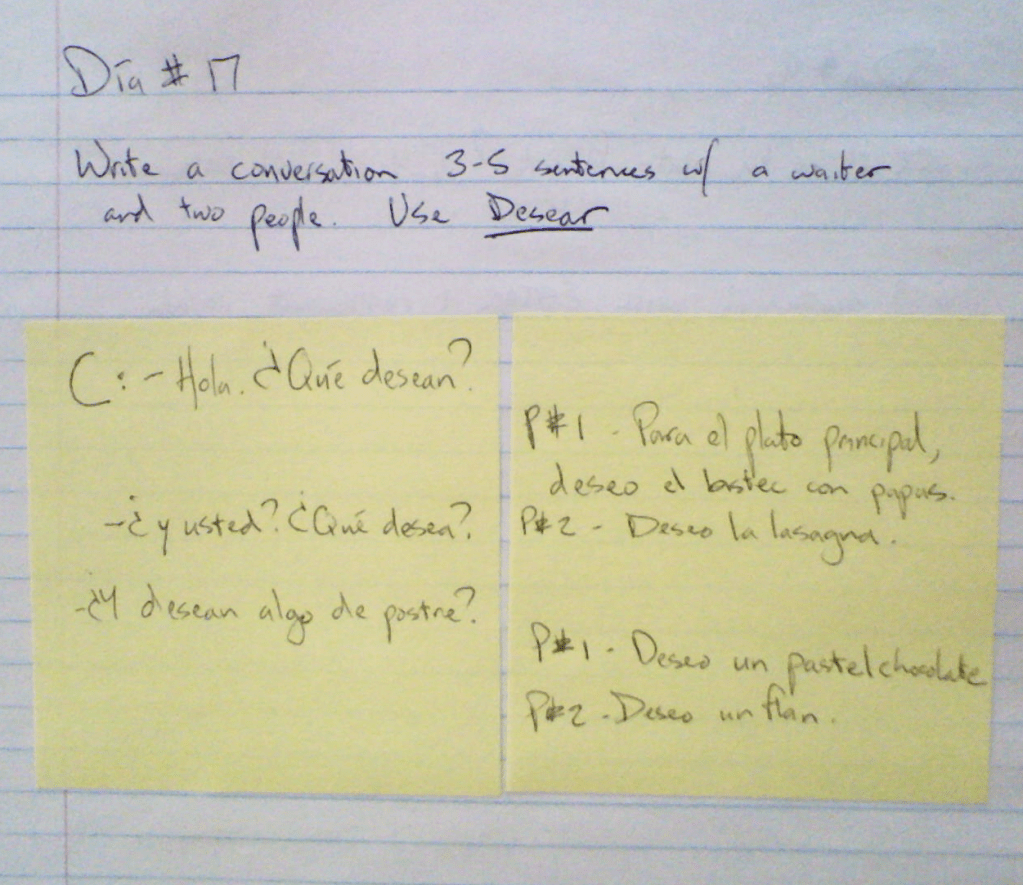 Día # 17
Write a conversation 3-5 sentences w/ a waiter
and two people. Use Desear
C: - Hola. ¿Qué desean?
- ¿y usted? ¿Qué desea?
- ¿Y desean algo de postre?
P#1 - Para el plato principal,
deseo el bistec con papas.
P#2 - Deseo la lasagna.
P#1 - Deseo un pastel chocolate
P#2 - Deseo un flan.